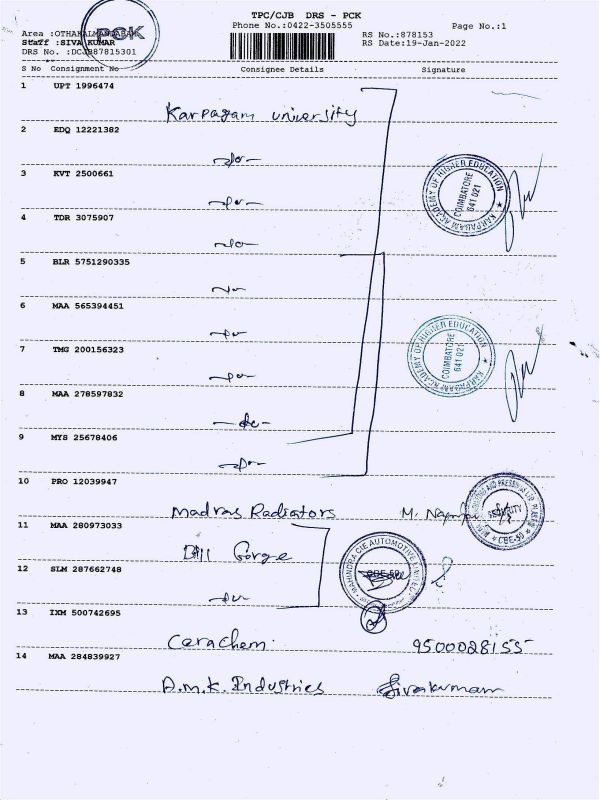 TPC/CJB DRS - PCK
Phone No.:0422-3505555 Page No.:1
PCK
Area :OTHAKALMANDABAM RS No.:878153
Staff :SIVA KUMAR RS Date:19-Jan-2022
DRS No. :DCJB87815301
S No Consignment No Consignee Details Signature
1 UPT 1996474
Karpagam university
2 EDQ 12221382
-do-
3 KVT 2500661
-do-
4 TDR 3075907
-do-
KARPAGAM ACADEMY OF HIGHER EDUCATION
COIMBATORE
641 021
5 BLR 5751290335
-do-
6 MAA 565394451
-do-
7 TMG 200156323
-do-
8 MAA 278597832
-do-
KARPAGAM ACADEMY OF HIGHER EDUCATION
COIMBATORE
641 021
9 MYS 25678406
-do-
10 PRO 12039947
Madras Radiators
SECURITY
CBE-50
11 MAA 280973033
Gorge
12 SLM 287662748
-do-
MAHINDRA CIE AUTOMOTIVE LIMITED
13 IXM 500742695
Cerachem. 9500028155
14 MAA 284839927
A.m.k. Industries Sivakumar